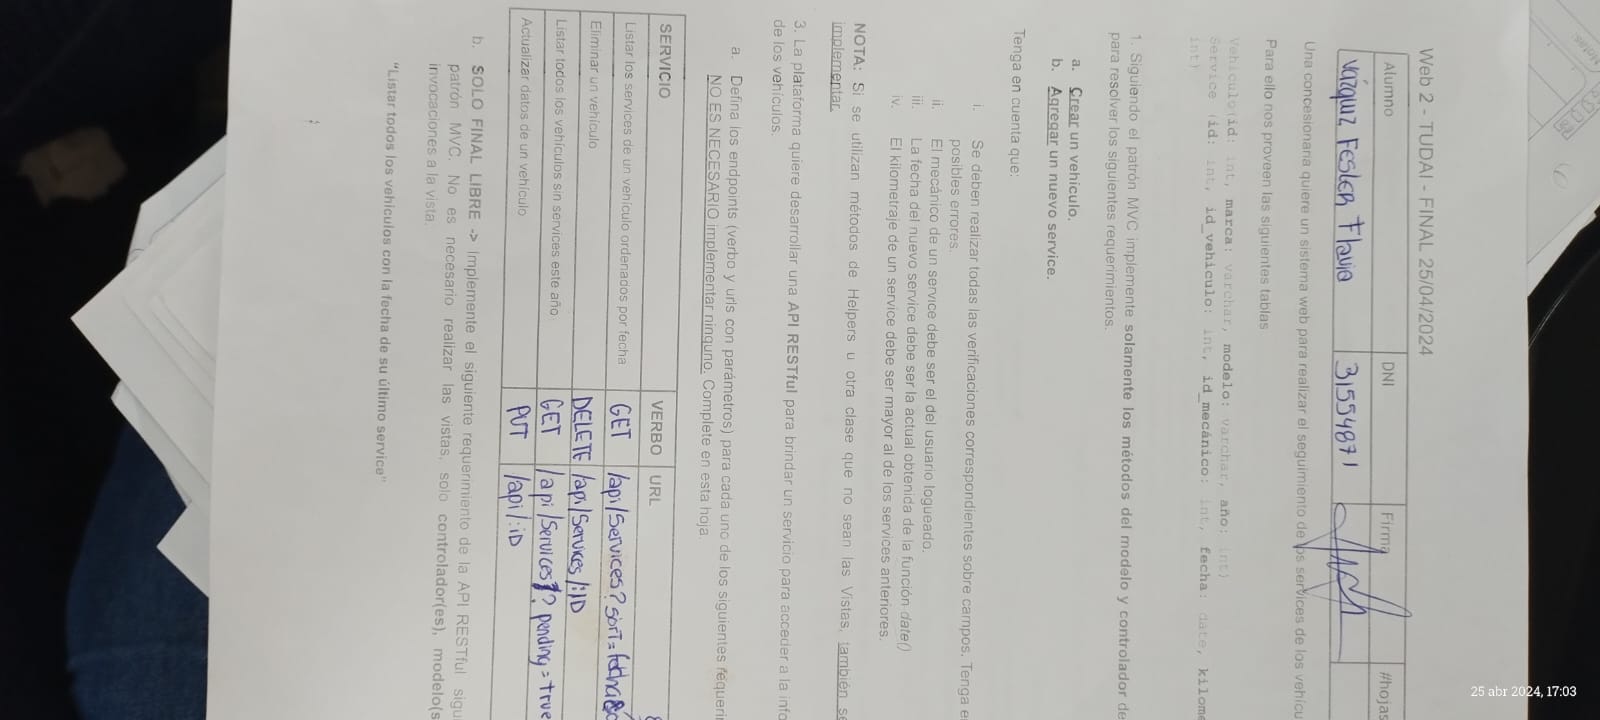 25 abr 2024, 17:03
Notas:
Web 2 - TUDAI - FINAL 25/04/2024
Alumno DNI Firma #hojas
Vazquez FESLER Flavia 31554871
Una concesionaria quiere un sistema web para realizar el seguimiento de los services de los vehícu
Para ello nos proveen las siguientes tablas
Vehiculo(id: int, marca: varchar, modelo: varchar, año: int)
Service (id: int, id_vehiculo: int, id_mecánico: int, fecha: date, kilome
int)
1. Siguiendo el patrón MVC implemente solamente los métodos del modelo y controlador de
para resolver los siguientes requerimientos.
a. Crear un vehículo.
b. Agregar un nuevo service.
Tenga en cuenta que:
i. Se deben realizar todas las verificaciones correspondientes sobre campos. Tenga e
posibles errores.
ii. El mecánico de un service debe ser el del usuario logueado.
iii. La fecha del nuevo service debe ser la actual obtenida de la función date()
iv. El kilometraje de un service debe ser mayor al de los services anteriores.
NOTA: Si se utilizan métodos de Helpers u otra clase que no sean las Vistas, también se
implementar.
3. La plataforma quiere desarrollar una API RESTful para brindar un servicio para acceder a la info
de los vehículos.
a. Defina los endpoints (verbo y urls con parámetros) para cada uno de los siguientes requerir
NO ES NECESARIO implementar ninguno. Complete en esta hoja.
SERVICIO VERBO URL
Listar los services de un vehículo ordenados por fecha GET /api/Services?sort=fecha&
Eliminar un vehículo DELETE /api/Services/:ID
Listar todos los vehículos sin services este año GET /api/Services?pending=true
Actualizar datos de un vehículo PUT /api/:iD
b. SOLO FINAL LIBRE -> Implemente el siguiente requerimiento de la API RESTful sigu
patrón MVC. No es necesario realizar las vistas, solo controlador(es), modelo(s
invocaciones a la vista.
"Listar todos los vehiculos con la fecha de su último service"